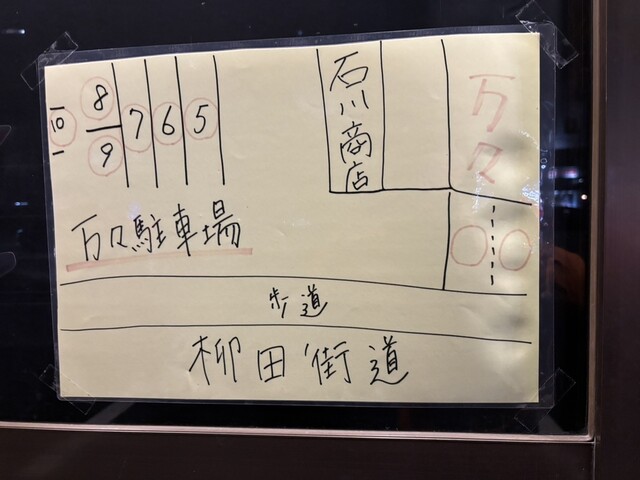 10
8
9
7
6
5
石川商店
万々
万々駐車場
歩道
柳田街道